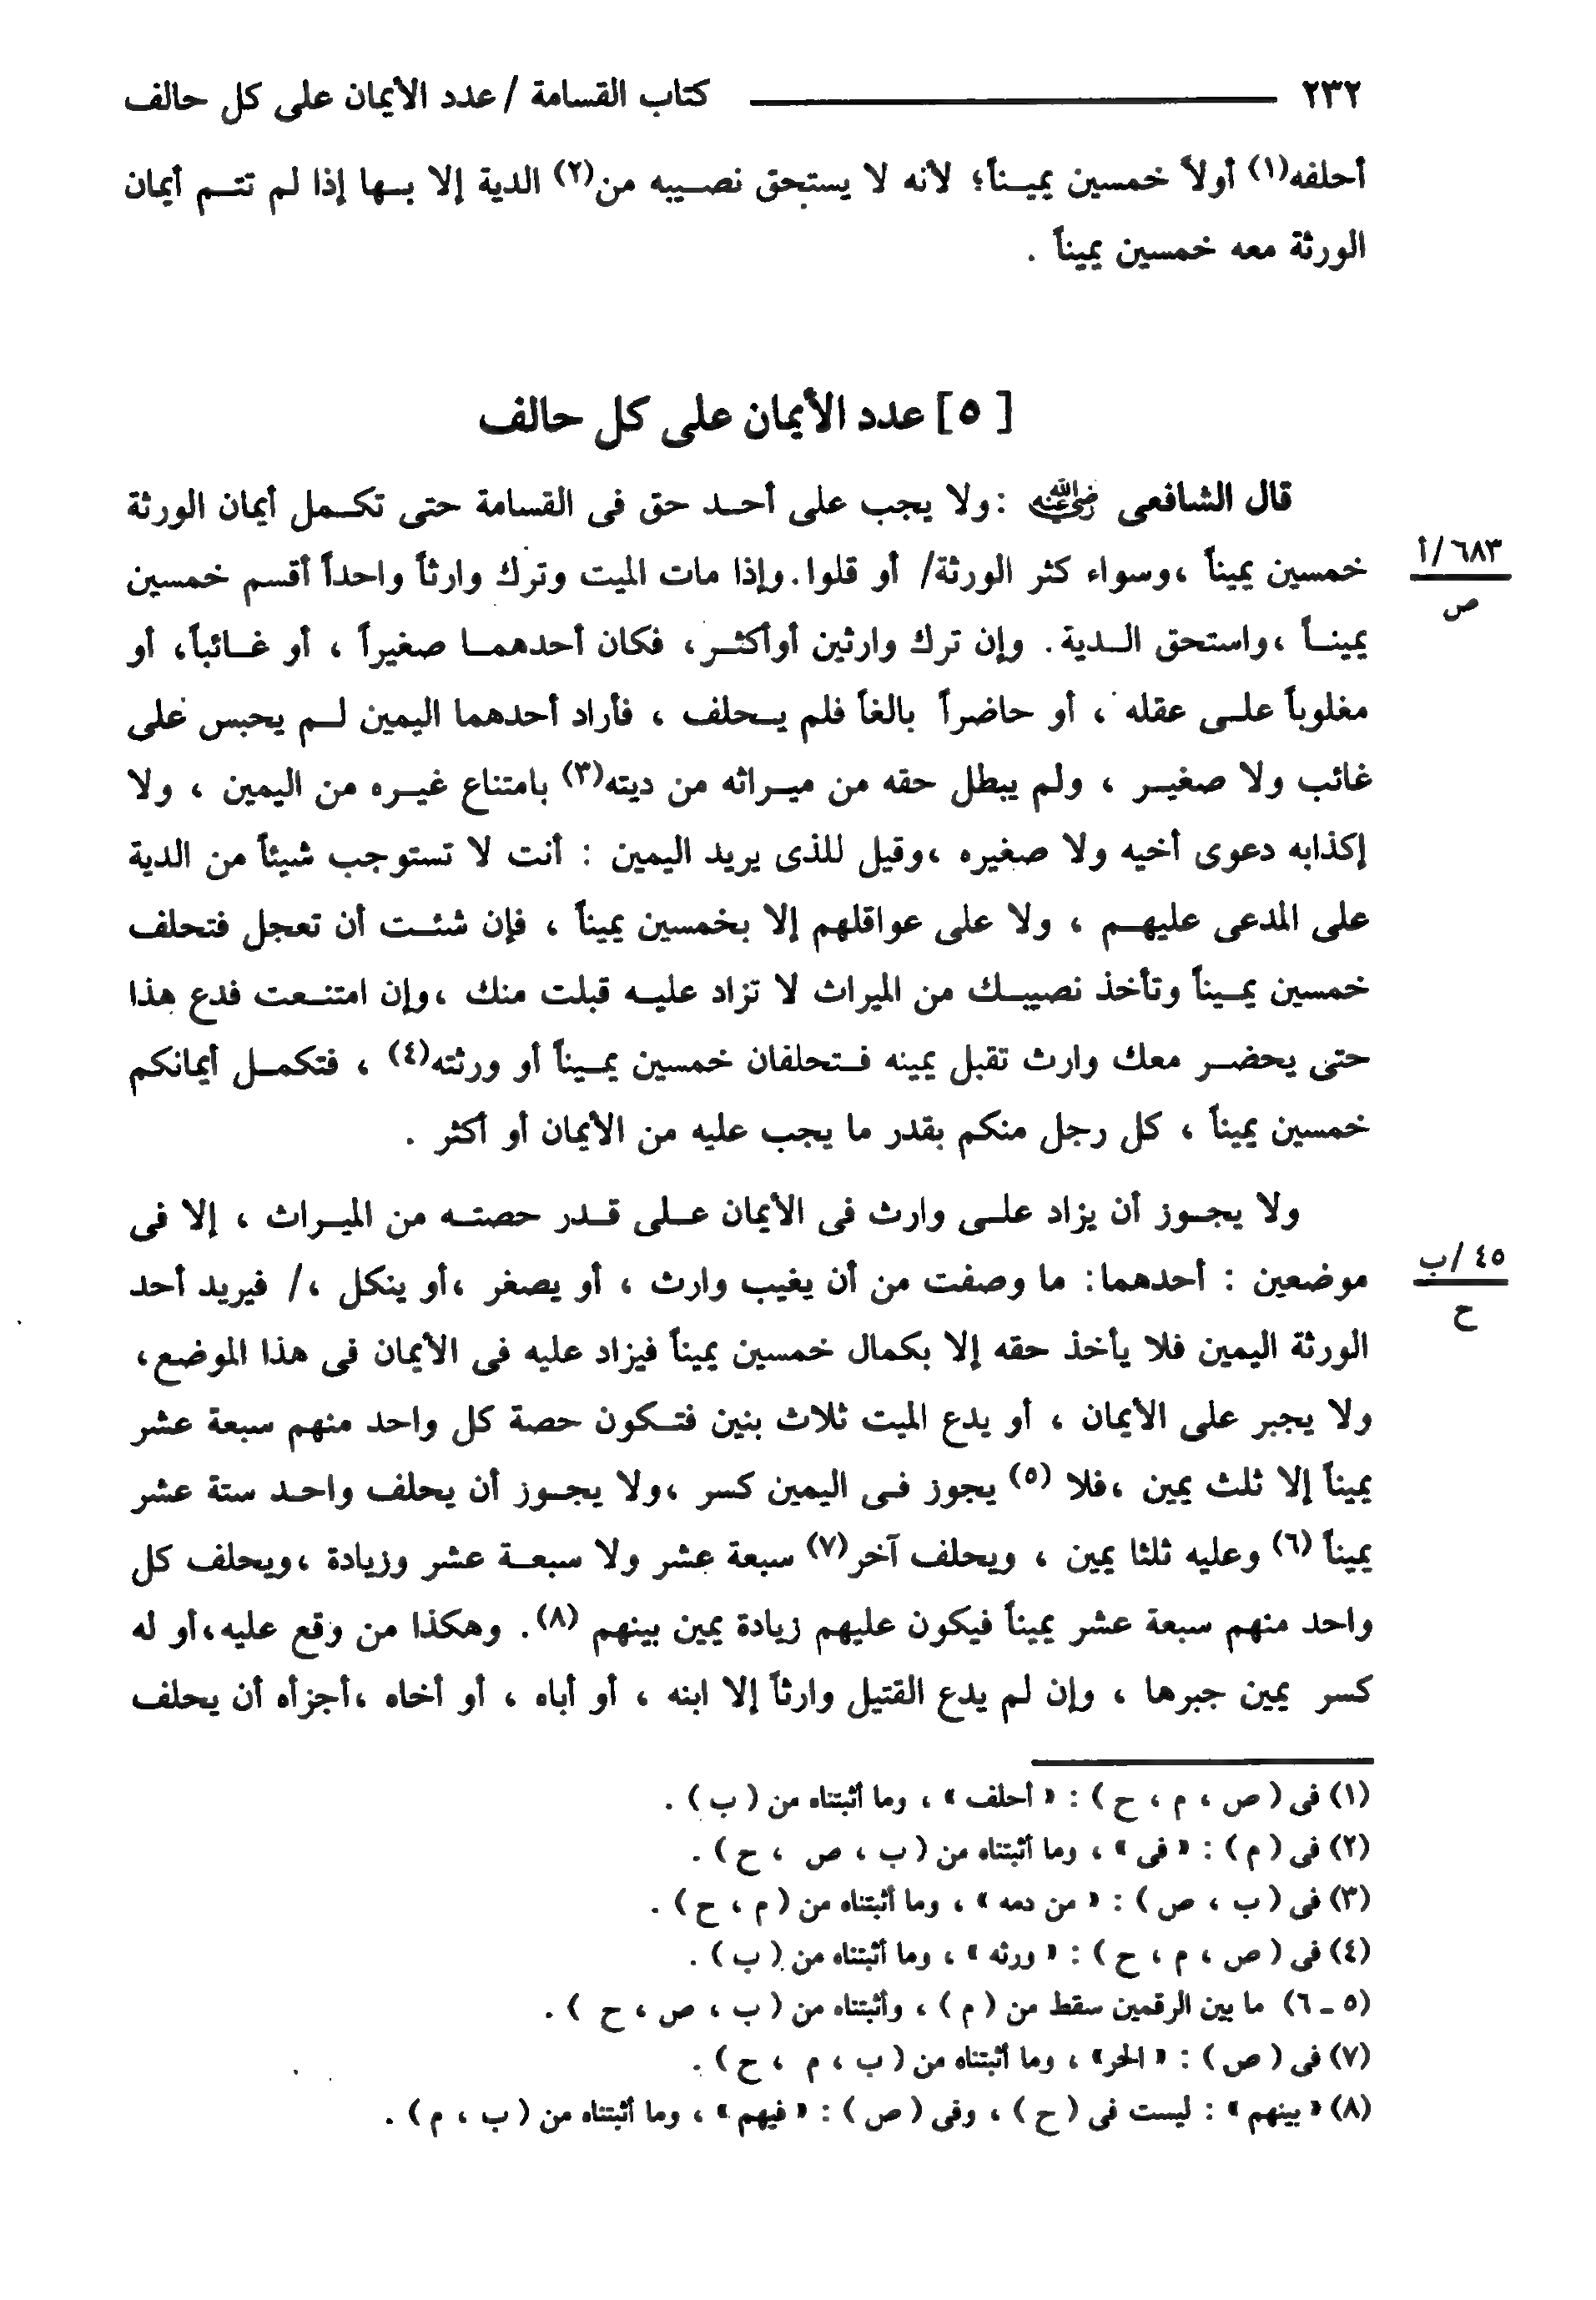 ٢٣٢ كتاب القسامة / عدد الأيمان على كل حالف
أحلفه(١) أولاً خمسين يميناً؛ لأنه لا يستحق نصيبه من(٢) الدية إلا بها إذا لم تتم أيمان
الورثة معه خمسين يميناً .
[ ٥ ] عدد الأيمان على كل حالف
قال الشافعى رضي الله عنه : ولا يجب على أحد حق فى القسامة حتى تكمل أيمان الورثة
خمسين يميناً ، وسواء كثر الورثة/ أو قلوا . وإذا مات الميت وترك وارثاً واحداً أقسم خمسين
٦٨٣ /أ
ص
يميناً ، واستحق الدية . وإن ترك وارثين أوأكثر ، فكان أحدهما صغيراً ، أو غائباً ، أو
مغلوباً على عقله ، أو حاضراً بالغاً فلم يحلف ، فأراد أحدهما اليمين لم يحبس على
غائب ولا صغير ، ولم يبطل حقه من ميراثه من ديته(٣) بامتناع غيره من اليمين ، ولا
إكذابه دعوى أخيه ولا صغيره ، وقيل للذى يريد اليمين : أنت لا تستوجب شيئاً من الدية
على المدعى عليهم ، ولا على عواقلهم إلا بخمسين يميناً ، فإن شئت أن تعجل فتحلف
خمسين يميناً وتأخذ نصيبك من الميراث لا تزاد عليه قبلت منك ، وإن امتنعت فدع هذا
حتى يحضر معك وارث تقبل يمينه فتحلفان خمسين يميناً أو ورثته(٤) ، فتكمل أيمانكم
خمسين يميناً ، كل رجل منكم بقدر ما يجب عليه من الأيمان أو أكثر .
ولا يجوز أن يزاد على وارث فى الأيمان على قدر حصته من الميراث ، إلا فى
موضعين : أحدهما : ما وصفت من أن يغيب وارث ، أو يصغر ، أو ينكل ، / فيريد أحد
٤٥ /ب
ح
الورثة اليمين فلا يأخذ حقه إلا بكمال خمسين يميناً فيزاد عليه فى الأيمان فى هذا الموضع ،
ولا يجبر على الأيمان ، أو يدع الميت ثلاث بنين فتكون حصة كل واحد منهم سبعة عشر
يميناً إلا ثلث يمين ، فلا (٥) يجوز فى اليمين كسر ، ولا يجوز أن يحلف واحد ستة عشر
يميناً (٦) وعليه ثلثا يمين ، ويحلف آخر(٧) سبعة عشر ولا سبعة عشر وزيادة ، ويحلف كل
واحد منهم سبعة عشر يميناً فيكون عليهم زيادة يمين بينهم (٨). وهكذا من وقع عليه ، أو له
كسر يمين جبرها ، وإن لم يدع القتيل وارثاً إلا ابنه ، أو أباه ، أو أخاه ، أجزأه أن يحلف
(١) فى ( ص ، م ، ح ) : « أحلف » ، وما أثبتناه من ( ب ) .
(٢) فى ( م ) : « فى » ، وما أثبتناه من ( ب ، ص ، ح ) .
(٣) فى ( ب ، ص ) : « من دمه » ، وما أثبتناه من ( م ، ح ) .
(٤) فى ( ص ، م ، ح ) : « ورثه » ، وما أثبتناه من ( ب ) .
(٥ ـ ٦) ما بين الرقمين سقط من ( م ) ، وأثبتناه من ( ب ، ص ، ح ) .
(٧) فى ( ص ) : « الحر» ، وما أثبتناه من ( ب ، م ، ح ) .
(٨) « بينهم » : ليست فى ( ح ) ، وفى ( ص ) : « فيهم » ، وما أثبتناه من ( ب ، م ) .